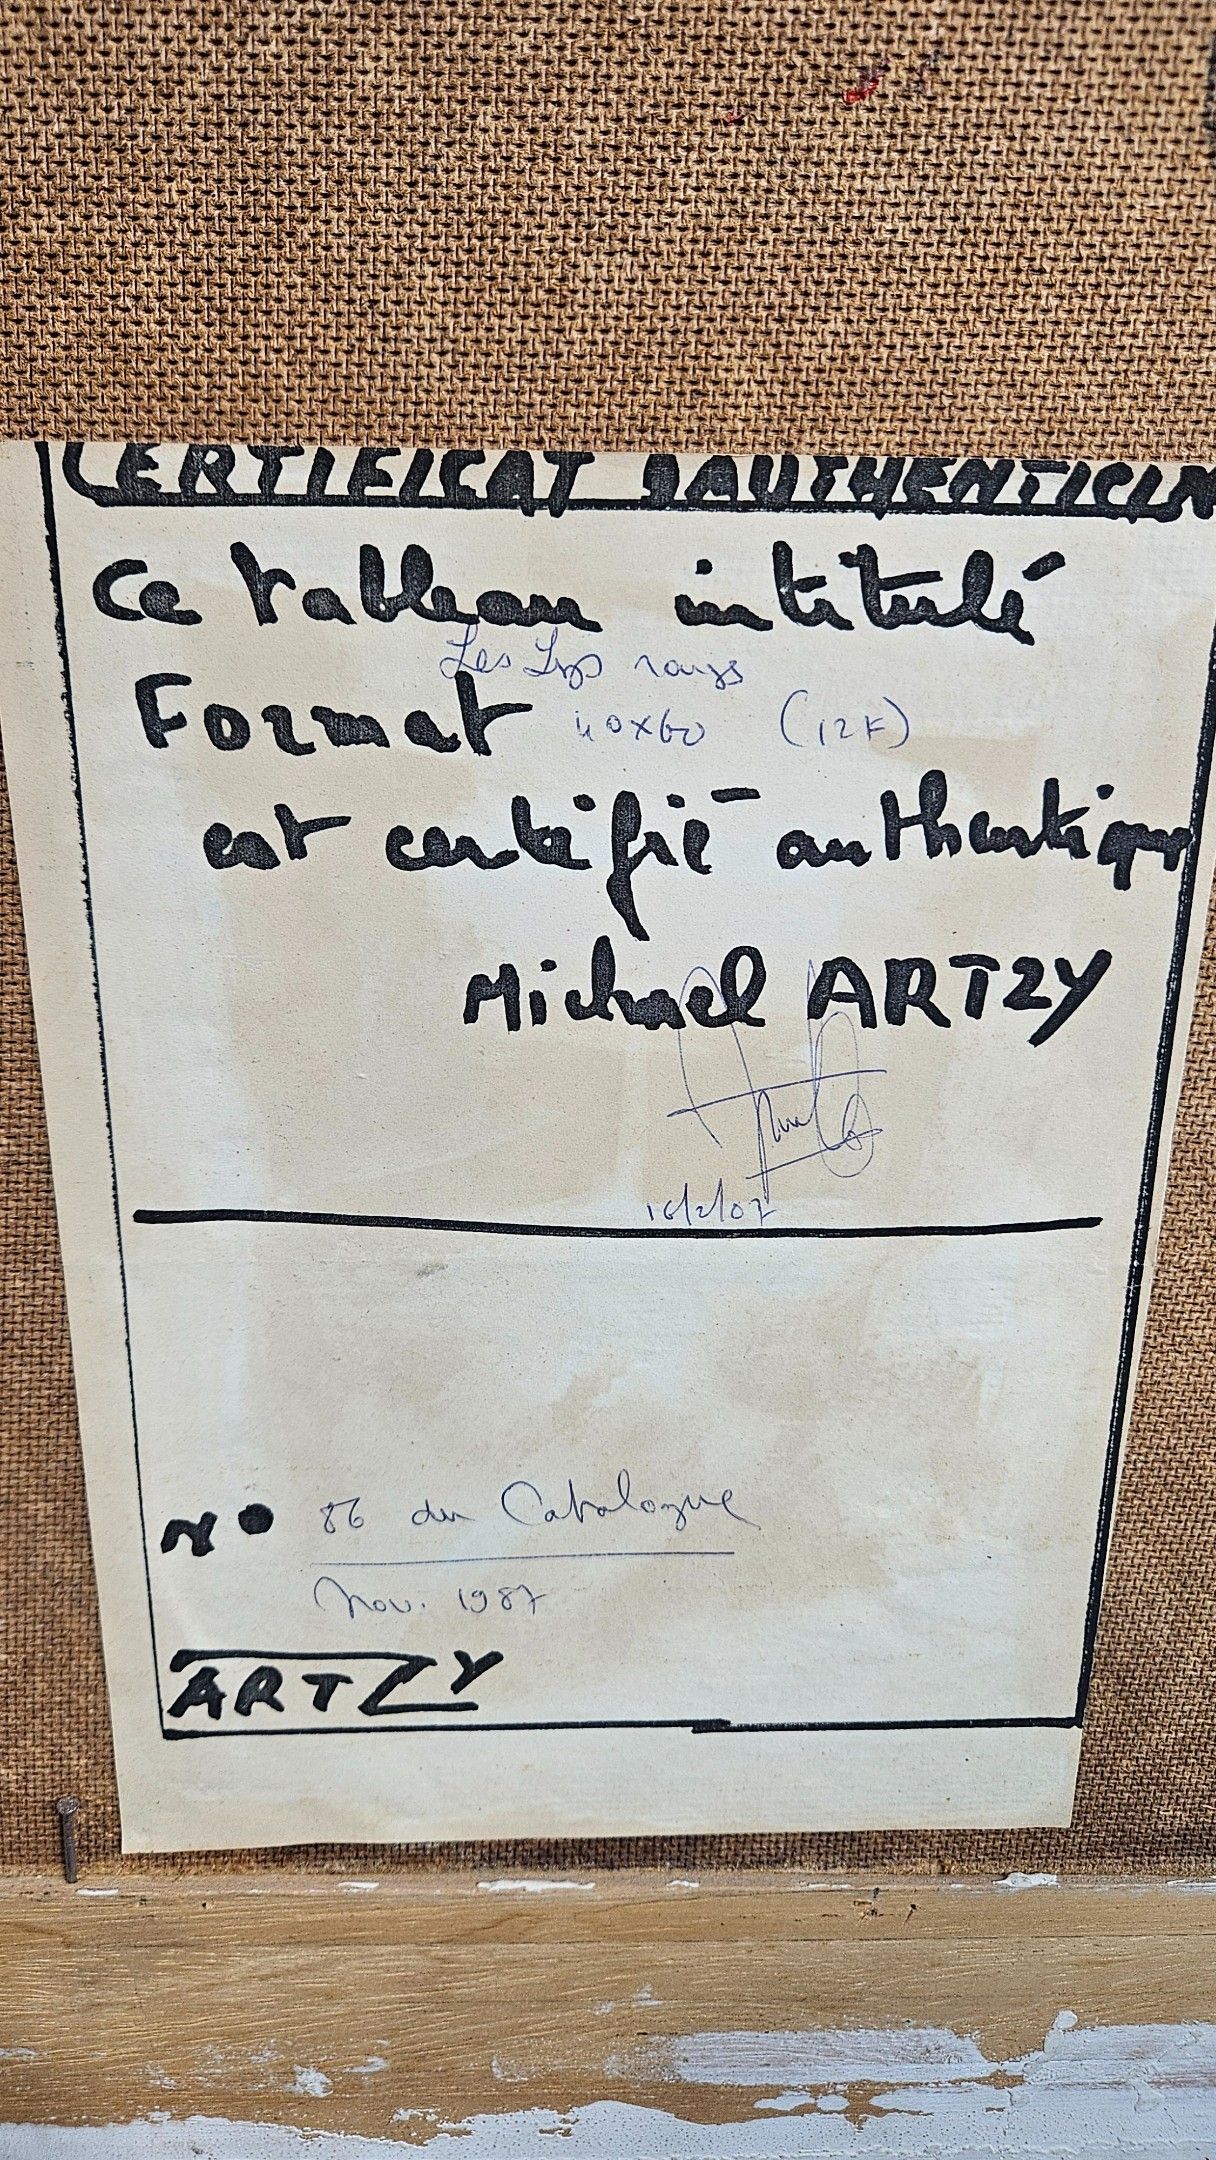 CERTIFICAT D'AUTHENTICIT
Ce tableau intitulé
Les Lys rouges
Format 40x60 (12F)
est certifié authentique
Michael ARTZY
16/2/07
N° 86 du Catalogue
Nov. 1987
ARTZY